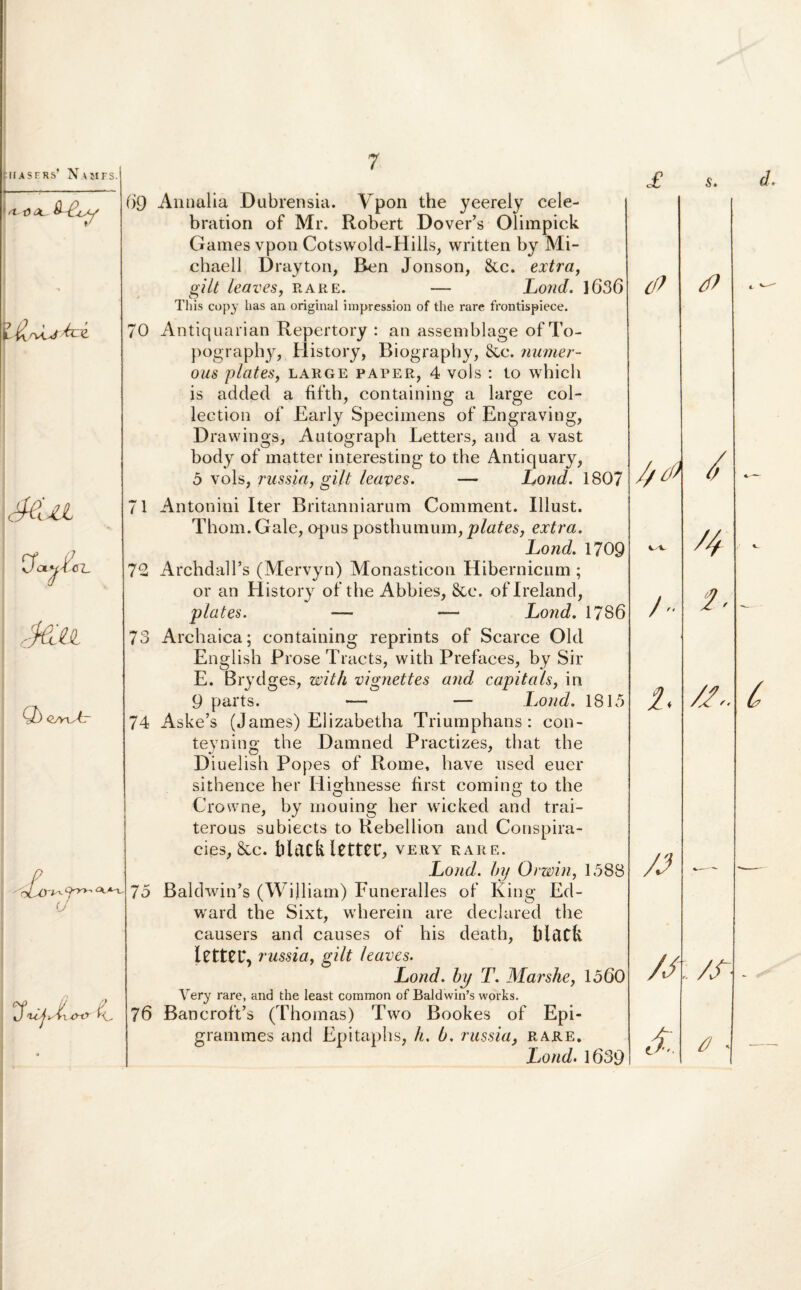 7
HASERS' NAMES.
£ s. d.
69 Annalia Dubrensia. Vpon the yeerely cele-
bration of Mr. Robert Dover's Olimpick
Games vpon Cotswold-Hills, written by Mi-
chaell Drayton, Ben Jonson, &c. extra,
gilt leaves, RARE. — Lond. 1636
This copy has an original impression of the rare frontispiece.
70 Antiquarian Repertory : an assemblage of To-
pography, History, Biography, &c. numer-
ous plates, LARGE PAPER, 4 vols : to which
is added a fifth, containing a large col-
lection of Early Specimens of Engraving,
Drawings, Autograph Letters, and a vast
body of matter interesting to the Antiquary,
5 vols, russia, gilt leaves. — Lond. 1807
Hill
71 Antonini Iter Britanniarum Comment. Illust.
Thom. Gale, opus posthumum, plates, extra.
Lond. 1709
14
Taylor
72 Archdall's (Mervyn) Monasticon Hibernicum ;
or an History of the Abbies, &c. of Ireland,
plates. — — Lond. 1786
1 2
Hill
73 Archaica; containing reprints of Scarce Old
English Prose Tracts, with Prefaces, by Sir
E. Brydges, with vignettes and capitals, in
9 parts. — — Lond. 1815
2 12 6
74 Aske's (James) Elizabetha Triumphans : con-
teyning the Damned Practizes, that the
Diuelish Popes of Rome, have used euer
sithence her Highnesse first coming to the
Crowne, by mouing her wicked and trai-
terous subiects to Rebellion and Conspira-
cies, &c. black letter, VERY RARE.
Lond. by Orwin, 1588
13
75 Baldwin's (William) Funeralles of King Ed-
ward the Sixt, wherein are declared the
causers and causes of his death, black
letter, russia, gilt leaves.
Lond. by T. Marshe, 1560
15 15
Very rare, and the least common of Baldwin's works.
76 Bancroft's (Thomas) Two Bookes of Epi-
grammes and Epitaphs, h. b. russia, RARE.
Lond. 1639